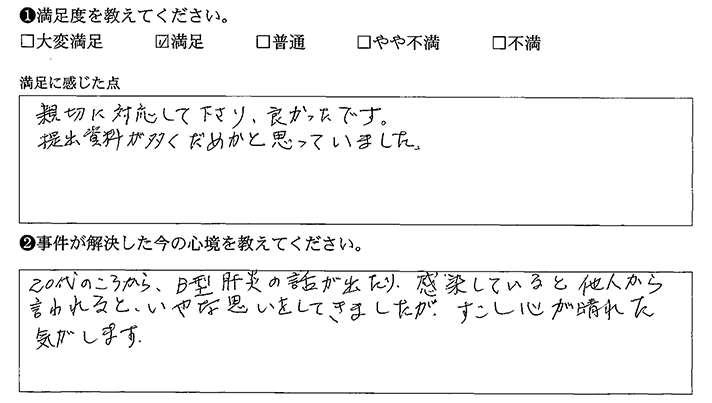 ❶満足度を教えてください。
☐大変満足 ☑満足 ☐普通 ☐やや不満 ☐不満
満足に感じた点
親切に対応して下さり、良かったです。
提出資料が多くだめかと思っていました。
❷事件が解決した今の心境を教えてください。
20代のころから、B型肝炎の話が出たり、感染していると他人から
言われると、いやな思いをしてきましたが、すこし心が晴れた
気がします.